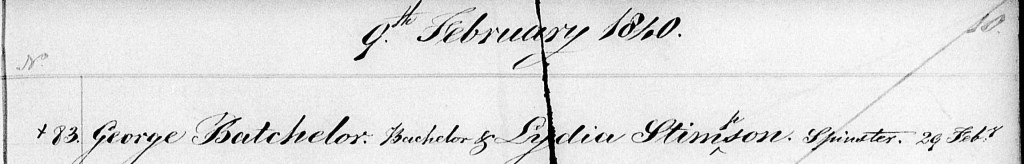 9th February 1840.
10.
No
+ 83. George Batchelor. Bachelor & Lydia Stimpson. Spinster. 29 Feby